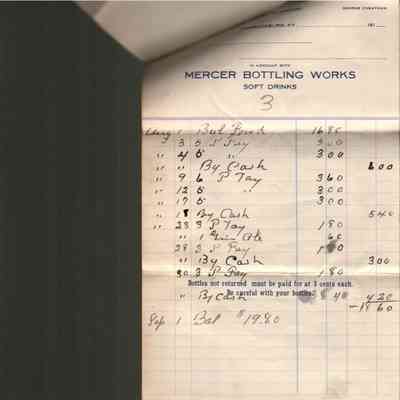 GEORGE CHEATHAM
191
IN ACCOUNT WITH
MERCER BOTTLING WORKS
SOFT DRINKS
3
Aug 1 Bal 16 80
3 5 S Pay 3 00
" 4 5 " 3 00
" By Cash 6 00
" 9 6 P Tay 3 60
" 12 5 " 3 00
" 17 5 " 3 00
" 18 By Cash 5 40
" 23 3 P Tay 1 80
" 1 Ale 60
28 3 S Pay 1 80
" By Cash 3 00
30 3 S Pay 1 80
Bottles not returned must be paid for at 5 cents each.
Be careful with your bottles.
" By Cash 38 40 4 20
18 60
Sep 1 Bal $19.80